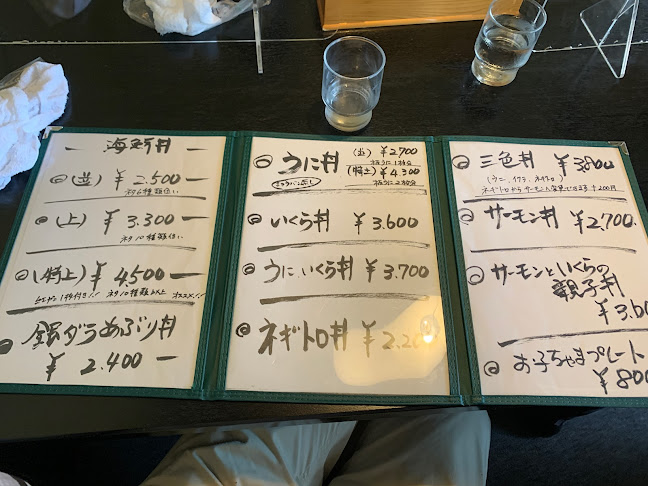 海鮮丼
(並) ¥2.500
ネタ6種類位い
(上) ¥3.300
ネタ10種類位い
(特上) ¥4.500
ネタ10種類以上 オススメ!!
銀ダラあぶり丼
¥2.400
うに丼 (並) ¥2700
(特上) ¥4.300
いくら丼 ¥3.600
うにいくら丼 ¥3.700
ネギトロ丼 ¥2.20
三色丼 ¥3.800
(ウニ、イクラ、ネギトロ)
ネギトロからサーモンに変更できます +200円
サーモン丼 ¥2.700.
サーモンといくらの
親子丼
¥3.60
お子ちゃまプレート
¥800